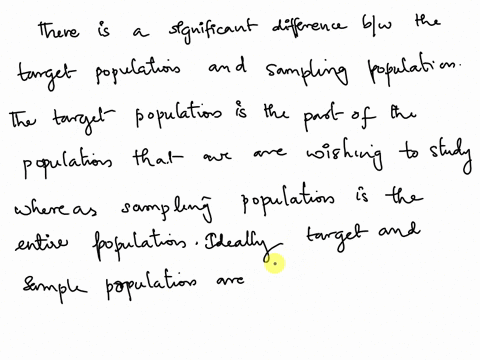 There is a significant difference b/w the
target population and sampling population.
The target population is the part of the
population that we are wishing to study
where as sampling population is the
entire population. Ideally target and
sample population are